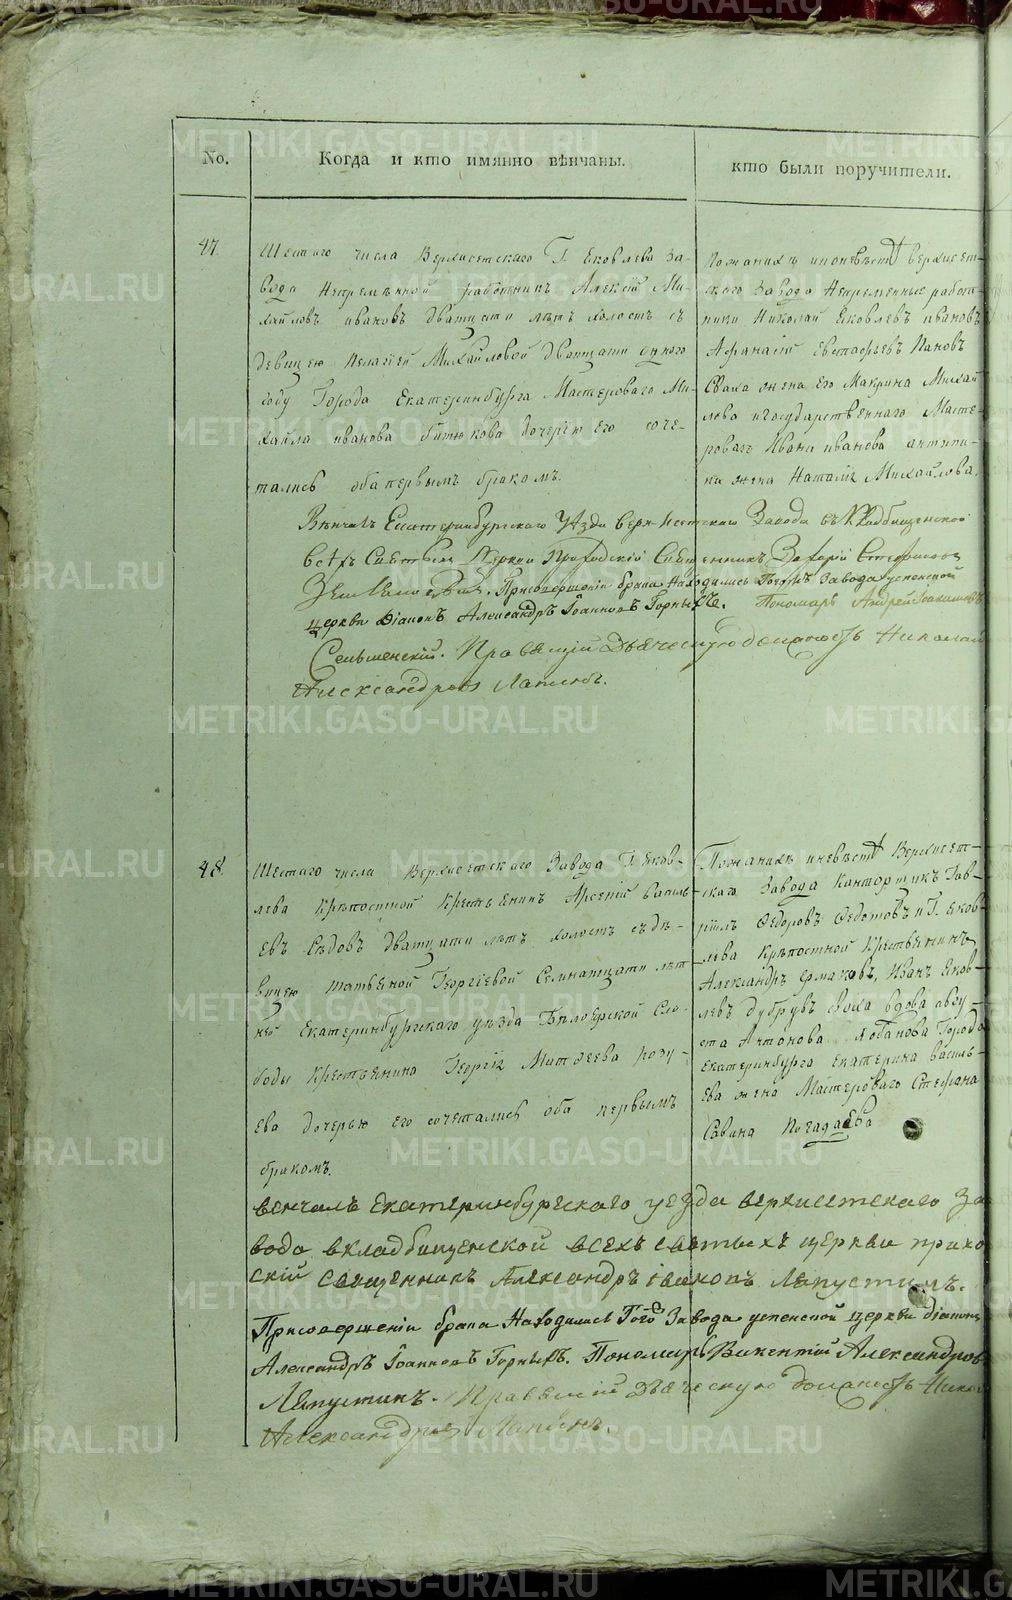 No.
Когда и кто имянно вѣнчаны.
кто были поручители.
47.
Шестаго числа Верхисетскаго Г. Яковлева За-
вода Непремѣнной работникъ Алексѣй Ми-
хайловъ ивановъ дватцати лѣтъ холостъ съ
девицею Пелагіей Михайловой дватцати одного
году Города Екатеринбурга Мастероваго Ми-
хайла иванова битюкова дочерью его соче-
тались оба первымъ бракомъ.
верхисет-
скаго Завода Непременные работ-
ники Николай Яковлевъ ивановъ
Афанасій Евстафьевъ Пановъ
Сваха жена его Макрина Михай
лова игосударственнаго Масте-
роваго Ивана иванова антипи-
на жена Наталія Михайлова.
Вѣнчалъ Екатеринбургскаго Уѣзда верх-Исетскаго Завода
Всѣхъ Святыхъ Церкви Приходскій Священникъ Захарій Стефановъ
Присовершеніи брака Находились Тогожъ Завода успенской
церкви Діаконъ Александръ Іоанновъ Горныхъ. Пономарь Андрей
Правящій Дьяческую должность Николай
Александровъ Лапинъ.
48.
Шестаго числа Верхисетскаго Завода Г. Яков-
лева Крѣпостной Крестьянинъ Арсеній василь
евъ Сѣдовъ дватцати лѣтъ холостъ съ дѣ-
вицею татьяной Георгіевой Семнатцати лѣт
ней Екатеринбургскаго уѣзда Бѣлоярской Сло-
боды Крестьянина Георгія Матфеева
ева дочерью его сочетались оба первымъ
бракомъ.
Верхисет-
скаго Завода Канторщикъ Гав-
ріилъ Федоровъ Федотовъ и Г. яков
лева Крѣпостной Крестьянинъ
Александръ ермаковъ, Иванъ яков-
левъ дубровъ сваха вдова авгу-
ста Антонова лобанова Города
Екатеринбурга екатерина василь-
ева жена Мастероваго Стефана
Савина Погадаева
венчалъ екатеринбургскаго уезда верхисетскаго за
вода вкладбищенской всехъ святыхъ церкви прихо
скій священникъ Александръ іваковъ Ляпустинъ.
Присовершеніи брака Находились Того Завода успенской церкви діаконъ
Александръ Іоанновъ Горныхъ. Пономарь Викентій Александровъ
Ляпустинъ. Правящій Дьяческую должность Никол
Александровъ Лапинъ.
METRIKI.GASO-URAL.RU